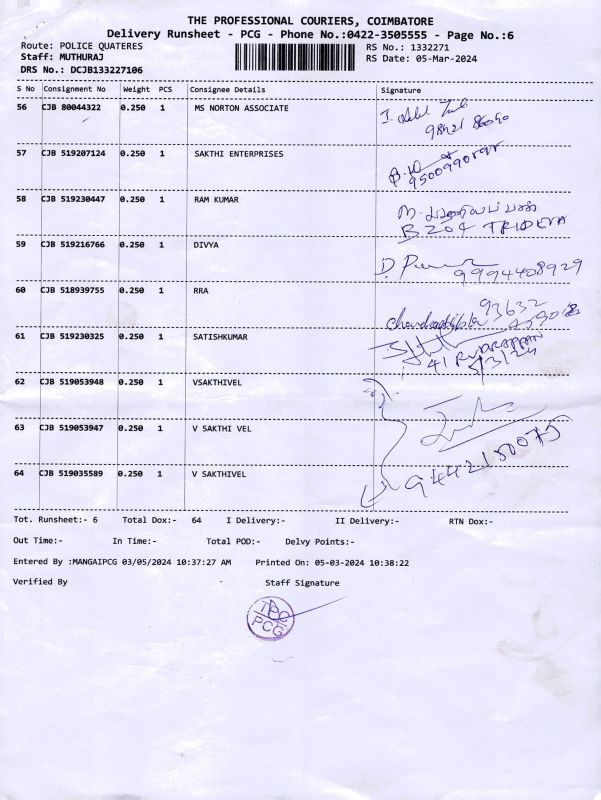 THE PROFESSIONAL COURIERS, COIMBATORE
Delivery Runsheet - PCG - Phone No.:0422-3505555 - Page No.:6
Route: POLICE QUATERES RS No.: 1332271
Staff: MUTHURAJ RS Date: 05-Mar-2024
DRS No.: DCJB133227106
S No Consignment No Weight PCS Consignee Details Signature
56 CJB 80044322 0.250 1 MS NORTON ASSOCIATE
57 CJB 519207124 0.250 1 SAKTHI ENTERPRISES
58 CJB 519230447 0.250 1 RAM KUMAR
B204 TRIDEVA
59 CJB 519216766 0.250 1 DIVYA
9994408929
60 CJB 518939755 0.250 1 RRA
93632
61 CJB 519230325 0.250 1 SATISHKUMAR
5/3/24
62 CJB 519053948 0.250 1 VSAKTHIVEL
63 CJB 519053947 0.250 1 V SAKTHI VEL
64 CJB 519035589 0.250 1 V SAKTHIVEL
9442150075
Tot. Runsheet:- 6 Total Dox:- 64 I Delivery:- II Delivery:- RTN Dox:-
Out Time:- In Time:- Total POD:- Delvy Points:-
Entered By :MANGAIPCG 03/05/2024 10:37:27 AM Printed On: 05-03-2024 10:38:22
Verified By Staff Signature
TPC
PCG